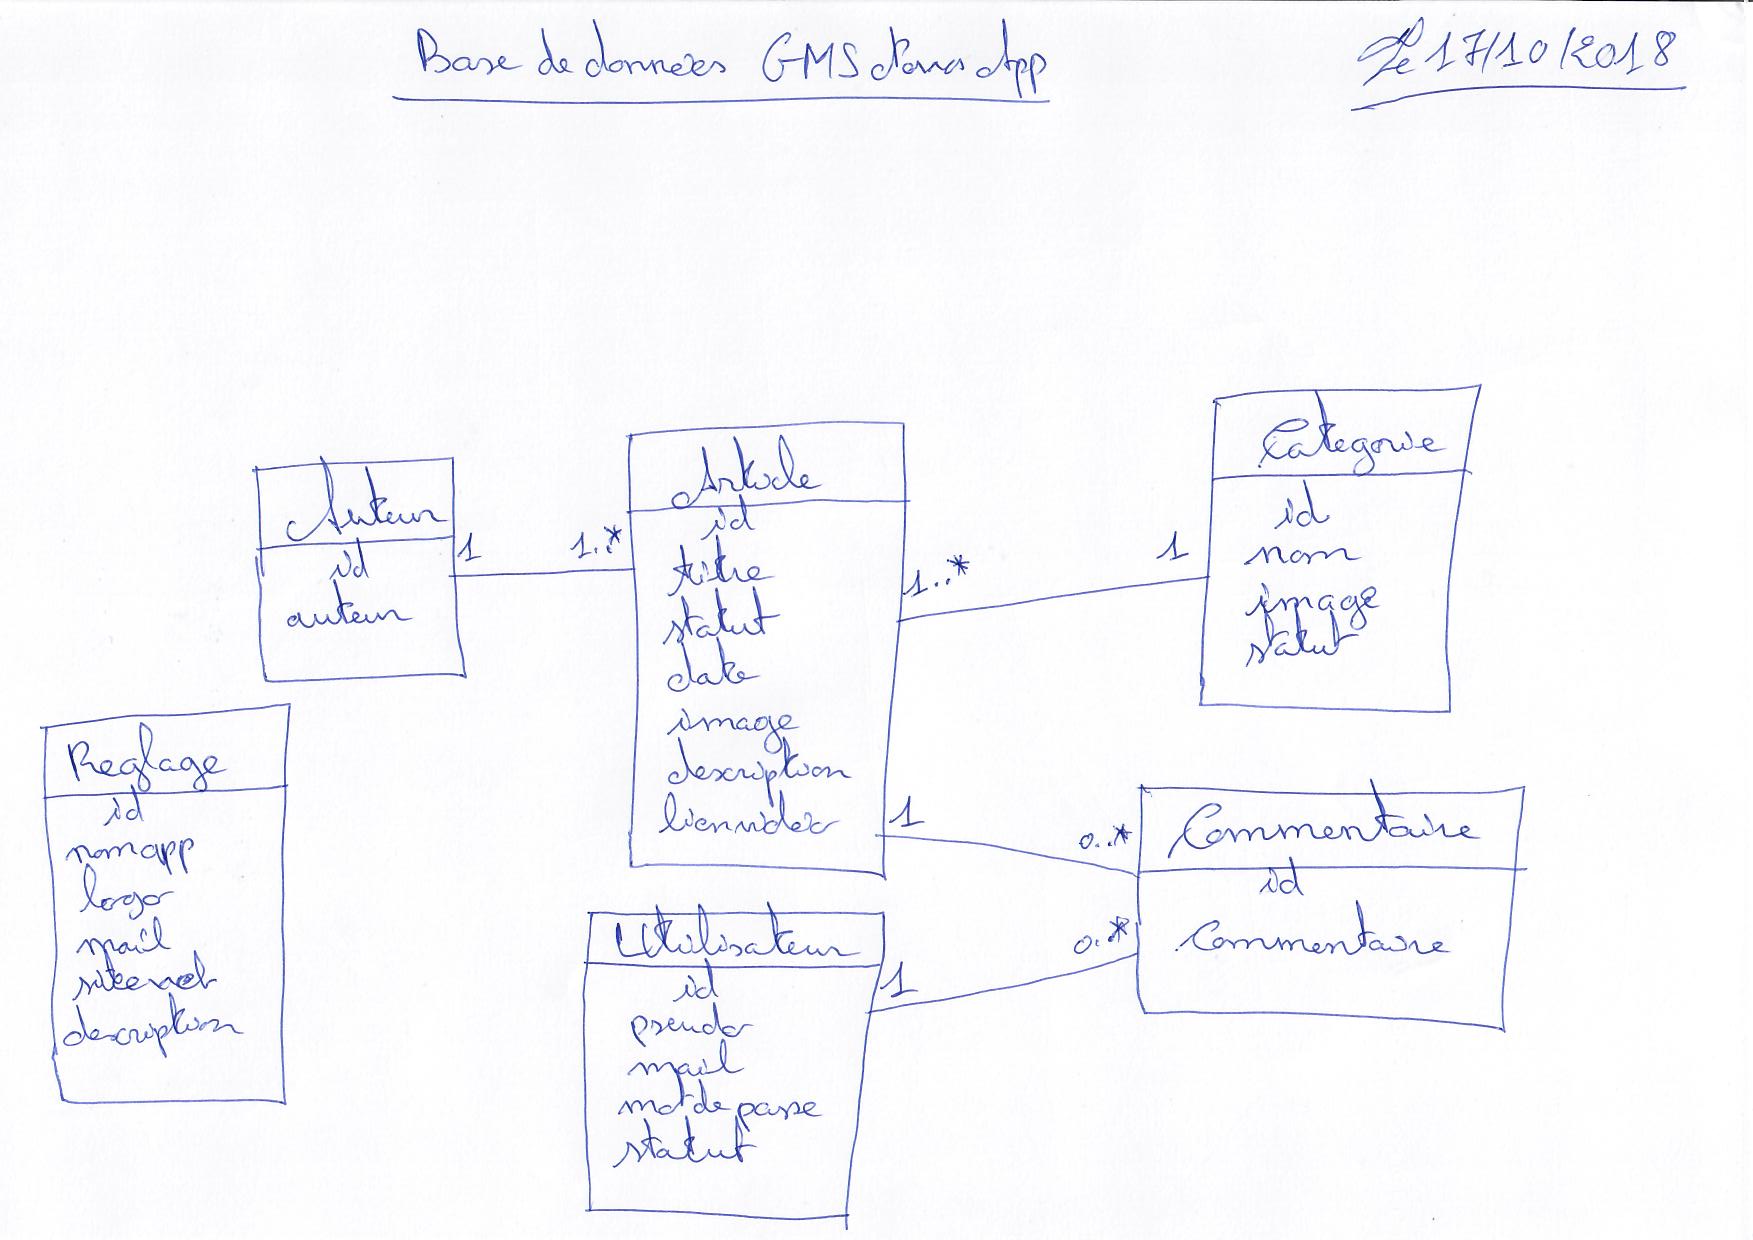 Base de données GMS
Le 17/10/2018
Auteur
id
auteur
1
1..*
Article
id
titre
statut
date
image
description
lienvidéo
1..*
1
Categorie
id
nom
image
statut
Reglage
id
nomapp
logo
mail
siteweb
description
1
0..*
Commentaire
id
Commentaire
Utilisateur
id
pseudo
mail
mot de passe
statut
1
0..*